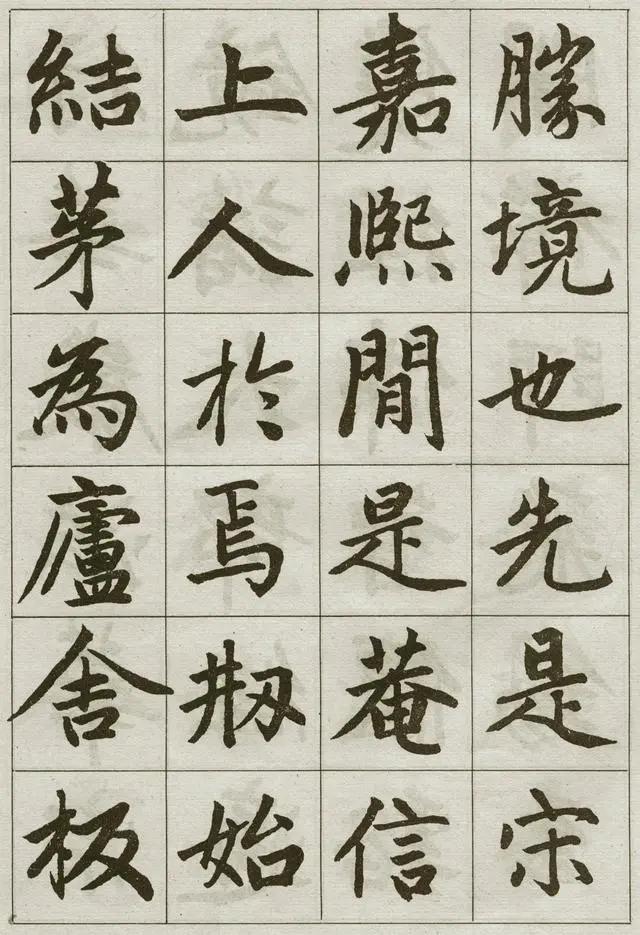 勝境也先是宋
嘉熈間是菴信
上人於焉刱始
結茅為廬舍板